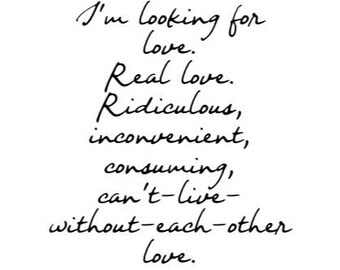 I'm looking for
love.
Real love.
Ridiculous,
inconvenient,
consuming,
can't-live-
without-each-other
love.